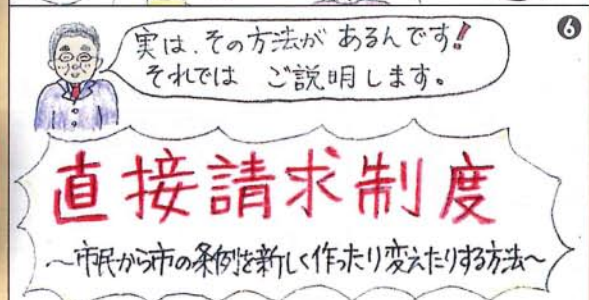 ❻
実は、その方法が あるんです!
それでは ご説明します。
直接請求制度
〜市民から市の条例を新しく作ったり変えたりする方法〜